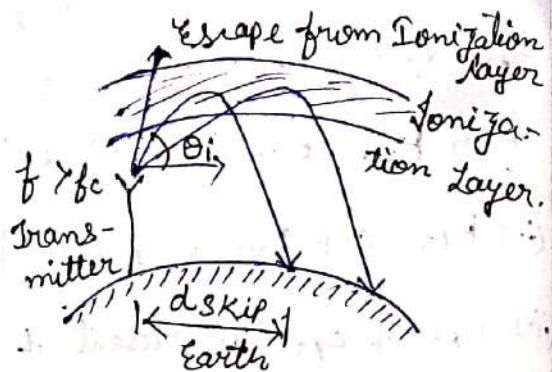 Escape from Ionization
layer
Ioniza-
tion Layer.
θi
f > fc
Trans-
mitter
dskip
Earth